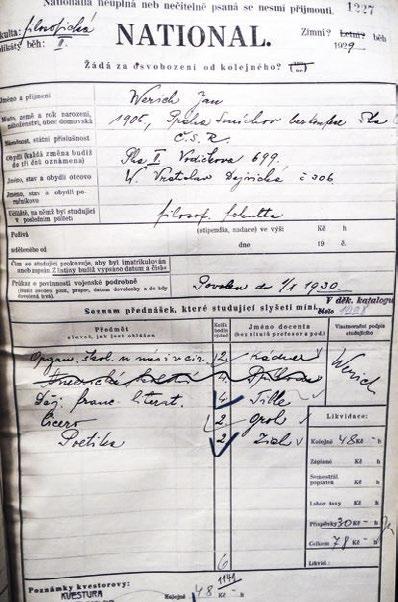 Nationalia neúplná neb nečitelně psaná se nesmí přijmouti. 1227
kulta: filosofická
NATIONAL.
Zimní? Letní? běh
olikátý běh: II.
1929
Žádá za osvobození od kolejného?
Jméno a příjmení Werich Jan
Místo, země a rok narození, náboženství, obec domovská 1905, Praha Smíchov
Národnost, státní příslušnost Č.S.R.
Obydlí (každá změna budiž do tří dní oznámena) Pha II. Vodičkova 699.
Jméno, stav a obydlí otcovo Vratislav Dejvická č 306
Jméno, stav a obydlí poručníkovo
Učiliště, na němž byl studující v posledním půlletí filosof. fakulta
Požívá (stipendia, nadace) ve výši Kč h
uděleného od dne 19 č.
Čím se studující prokazuje, aby byl imatrikulován
Průkaz o povinnosti vojenské podrobně 1930
V děk. katalogu
Seznam přednášek, které studující slyšeti míní.
číslo
Předmět
slovem, jak jest ohlášen
Počet hodin
Jméno docenta
(bez titulů profesor a pod.)
Vlastnoruční podpis studujícího
2
4
Děj. franc. literat. 4 Tille
Werich
Cicero 2 Groh
Poetika 2 Zich
Likvidace:
Kolejné 48 Kč - h
Zápisné Kč h
Semestrál. poplatek Kč h
Labor. taxy Kč h
Příspěvky 30 Kč - h
Celkem 78 Kč - h
6
Likvid.:
1141
Poznámky kvestorovy:
KVESTURA
Kolejné 48 Kč - h